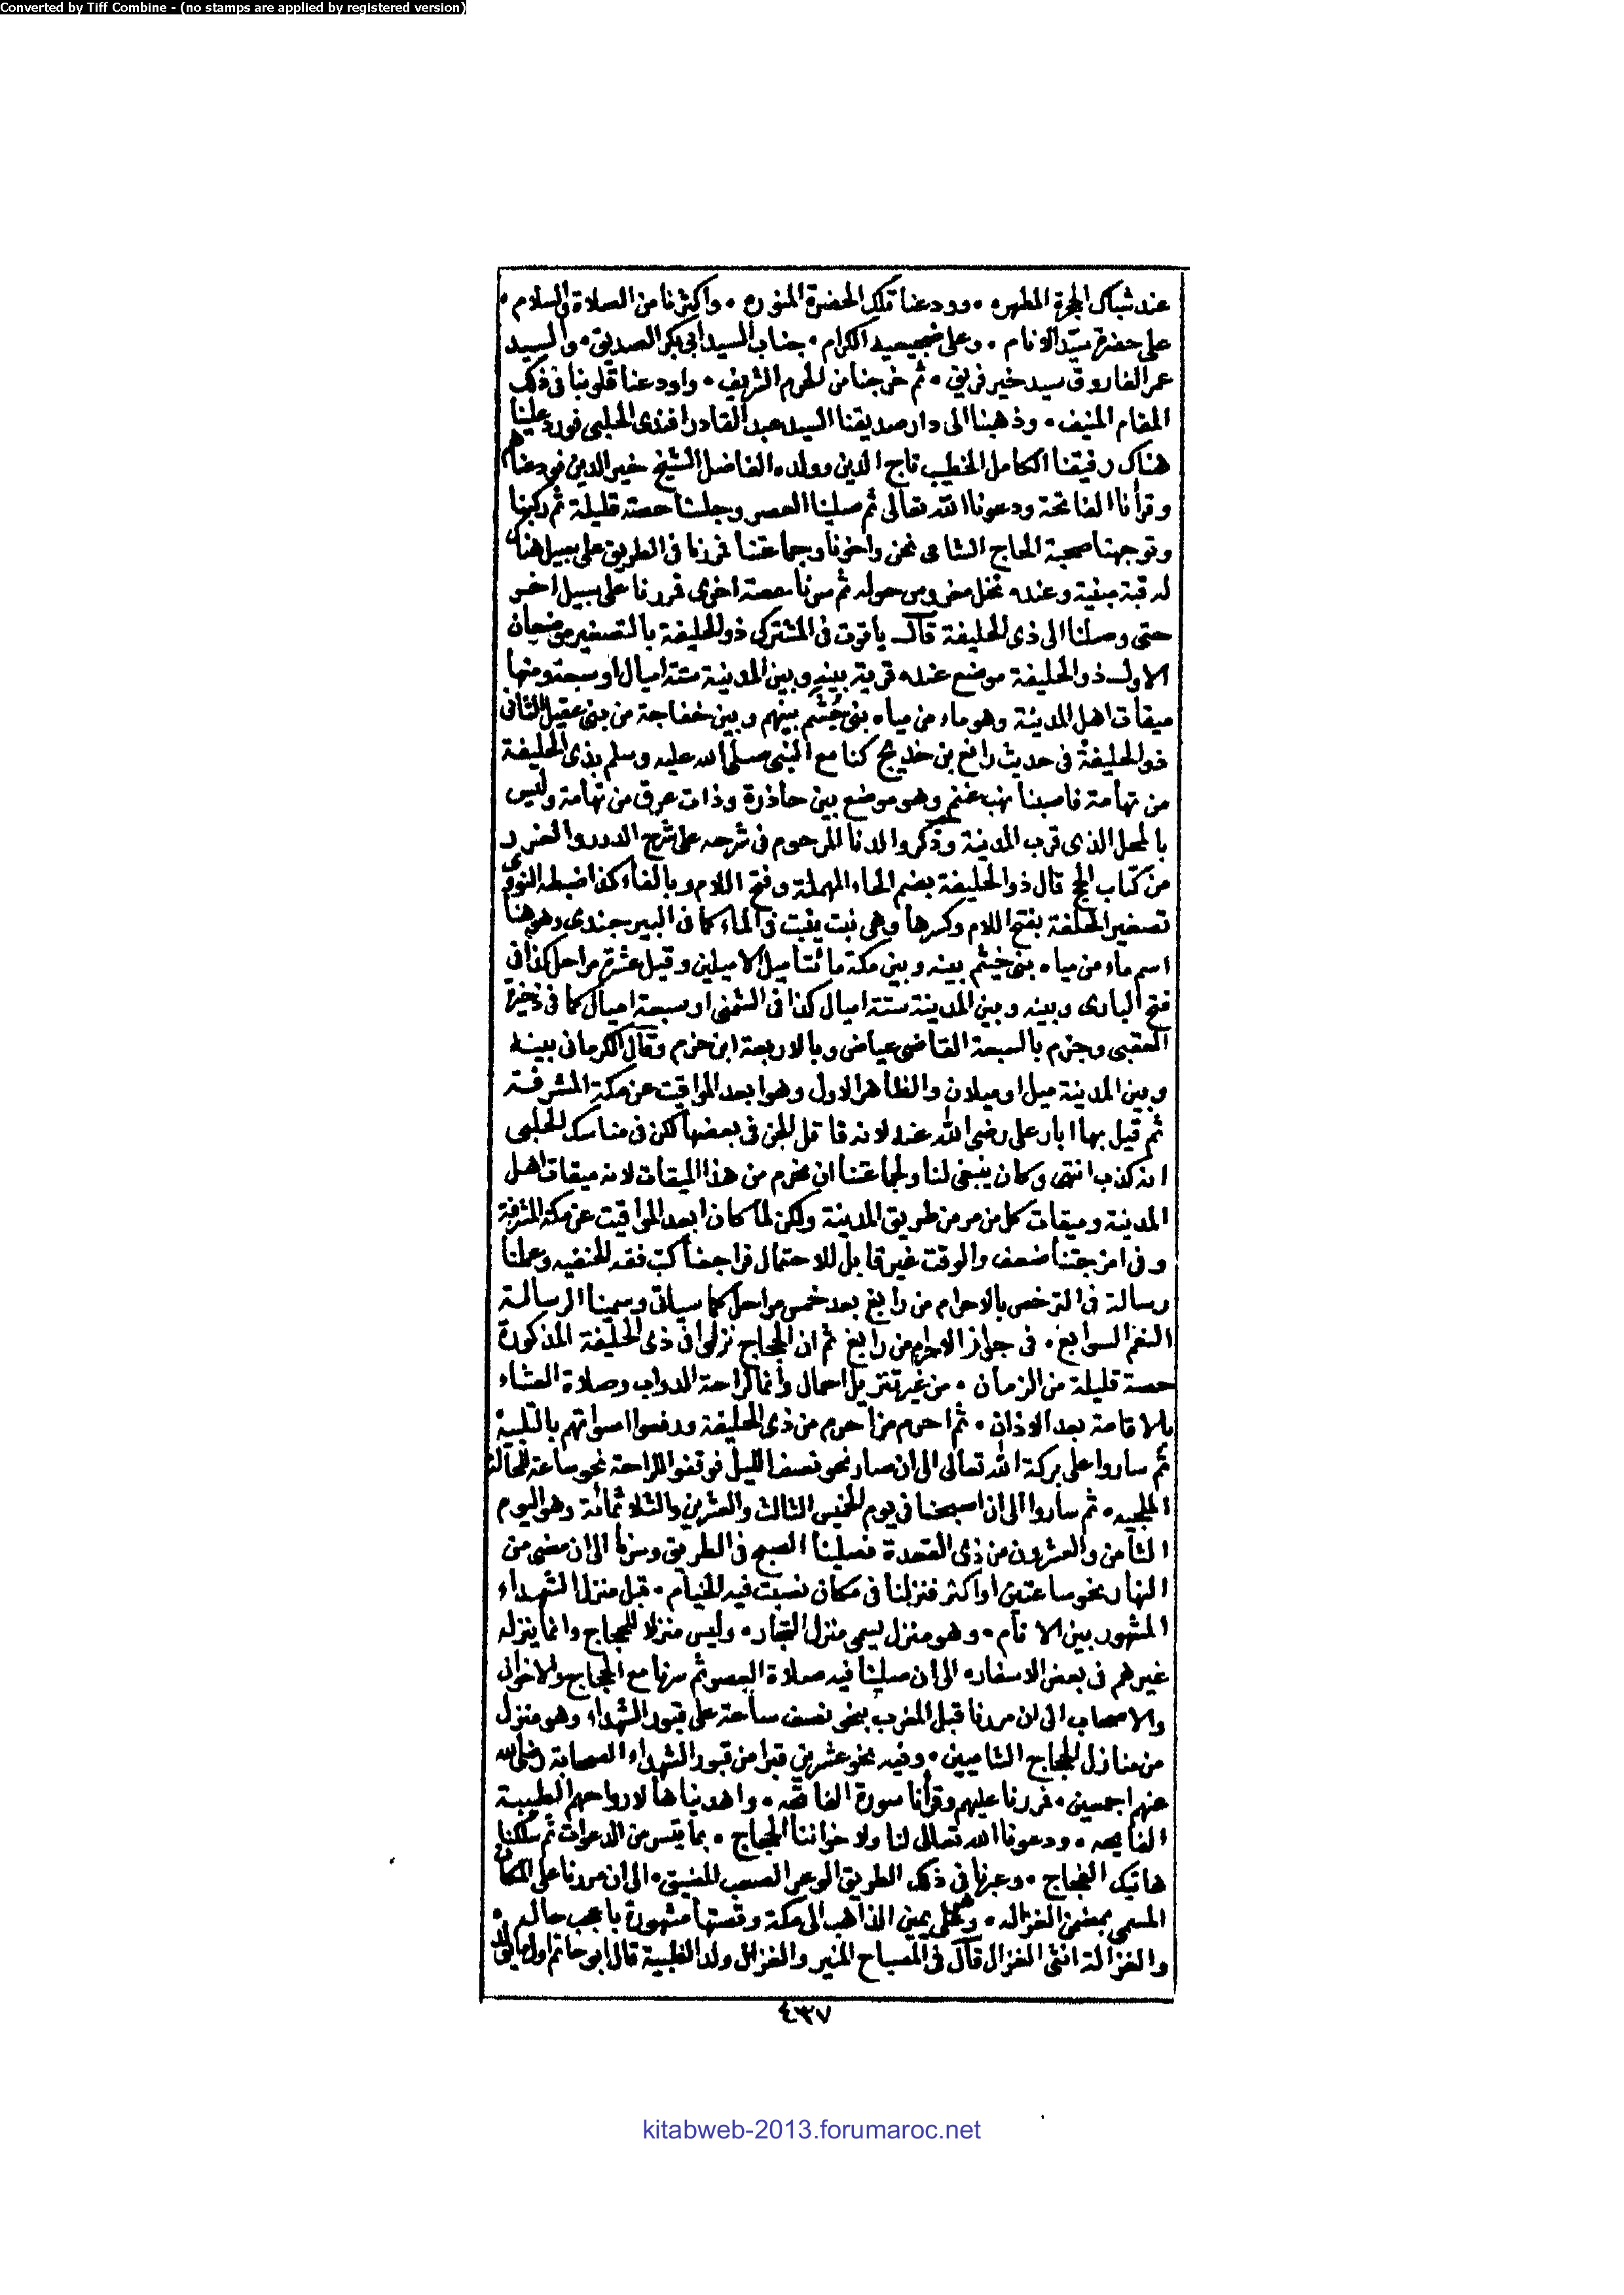 Converted by Tiff Combine - (no stamps are applied by registered version)
عند شباك الحجرة المطهره • وودعنا تلك الحضرة المنوره • واكثرنا من الصلاة والسلام •
على حضرة سيد الانام • وعلى ضجيعيه الكرام • جناب السيد ابى بكر الصديق • والسيد
عمر الفاروق سيد خير فريق • ثم خرجنا من الحرم الشريف • واودعنا قلوبنا فى ذلك
المقام المنيف • وذهبنا الى دار صديقنا السيد عبد القادر افندى الحلبى فورد علينا
هناك رفيقنا الكامل الخطيب تاج الدين وولده الفاضل الشيخ خير الدين فودعناهم
وقرأنا الفاتحة ودعونا الله تعالى ثم صلينا العصر وجلسنا حصة قليلة ثم ركبنا
وتوجهنا صحبة الحاج الشامى نحن واخونا وجماعتنا فمررنا فى الطريق على سبيل هناك
له قبة مبنية وعنده نخل من حوله ثم سرنا حصة اخرى فمررنا على سبيل اخر
حتى وصلنا الى ذى الحليفة قال ياقوت فى المشترك ذو الحليفة بالتصغير موضعان
الاول ذو الحليفة موضع عنده قرية بينه وبين المدينة ستة اميال او سبعة ومنها
ميقات اهل المدينة وهو ماء من مياه بنى جشم بينهم وبين خفاجة من بنى عقيل الثانى
ذو الحليفة فى حديث رافع بن خديج كنا مع النبى صلى الله عليه وسلم بذى الحليفة
من تهامة فاصبنا نهب غنم وهو موضع بين حاذرة وذات عرق من تهامة وليس
بالمحل الذى قرب المدينة وذكر والدنا المرحوم فى شرحه على شرح الدرر والغرر
من كتاب الحج قال ذو الحليفة بضم الحاء المهملة وفتح اللام وبالفاء كذا ضبطه النووى
تصغير الحلفة بفتح اللام وكسرها وهى نبت ينبت فى الماء كما فى البيرجندى وهو هنا
اسم ماء من مياه بنى جشم بينه وبين مكة مائتا ميل الا ميلين وقيل عشرة مراحل كذا فى
فتح البارى وبينه وبين المدينة ستة اميال كذا فى الشمنى او سبعة اميال كما فى ذخيرة
العقبى وجزم بالسبعة القاضى عياض وبالاربعة ابن حزم وقال الكرمانى بينه
وبين المدينة ميل او ميلان والظاهر الاول وهو ابعد المواقيت عن مكة المشرفة
ثم قيل بها ابار على رضى الله عنه لانه قاتل الجن فى بعضها لكن فى مناسك الحلبى
انه كذب انتهى وكان ينبغى لنا ولجماعتنا ان نحرم من هذا الميقات لانه ميقات اهل
المدينة وميقات كل من مر من طريق المدينة ولكن لما كان ابعد المواقيت عن مكة المشرفة
وفى امزجتنا ضعف والوقت غير قابل للاحتمال فراجعنا كتب فقه الحنفيه وعملنا
رسالة فى الترخص بالاحرام من رابغ بعد خمس مراحل كما سياتى وسمينا الرسالة
النعم السوابغ • فى جواز الاحرام من رابغ ثم ان الحجاج نزلوا فى ذى الحليفة المذكورة
حصة قليلة من الزمان • من غير تنزيل احمال وانما لراحة الدواب وصلاة العشاء
بالاقامة بعد الاذان • ثم احرم من احرم من ذى الحليفة ورفعوا اصواتهم بالتلبية
ثم ساروا على بركة الله تعالى الى ان صار نحو نصف الليل فوقفوا للراحة نحو ساعة
ثم ساروا الى ان اصبحنا فى يوم الخميس الثالث والعشرين والثلاثمائة وهو اليوم
الثامن والعشرون من ذى القعدة فصلينا الصبح فى الطريق وسرنا الى ان مضى من
النهار نحو ساعتين او اكثر فنزلنا فى مكان نصبت فيه الخيام • قبل منزل الشهداء
المشهور بين الانام • وهو منزل يسمى منزل التجار • وليس منزلا للحجاج وانما ينزله
غيرهم فى بعض الاسفار • الى ان صلينا فيه صلاة العصر ثم سرنا مع الحجاج والاخوان
والاصحاب الى ان مررنا قبل المغرب بنحو نصف ساعة على قبور الشهداء وهو منزل
من منازل الحجاج الشاميين • وفيه نحو عشرين قبرا من قبور الشهداء الصحابة رضى الله
عنهم اجمعين • فمررنا عليهم وقرأنا سورة الفاتحه • واهديناها لارواحهم الطيبة
الفايحه • ودعونا الله تعالى لنا ولاخواننا الحجاج • بما تيسر من الدعوات ثم سلكنا
هاتيك الفجاج • وعبرنا فى ذلك الطريق الوعر الصعب المضيق • الى ان مررنا على المكان
المسمى بمضمن الغزاله • وهو على يمين الذاهب الى مكة وقصتها مشهورة باعجب حاله •
والغزالة انثى الغزال قال فى المصباح المنير والغزال ولد الظبية قال ابو حاتم اول ما يولد
٤٣٧
kitabweb-2013.forumaroc.net